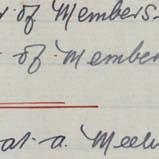 of Members
of Member
at a Meeti